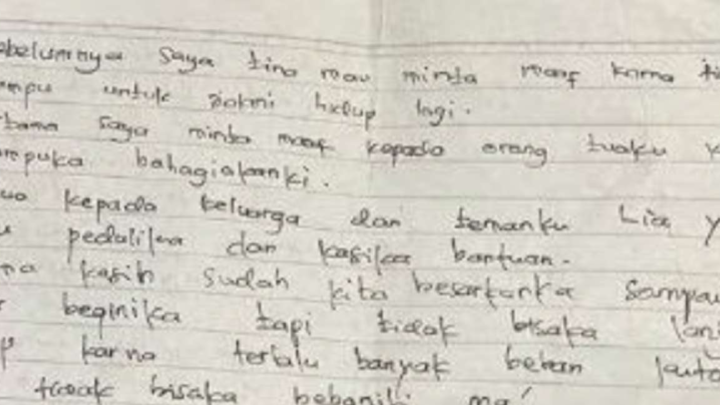 belumnya saya tino mau minta maaf karna
mpu untuk jalani hidup lagi.
tama saya minta maaf kepada orang tuaku
mpuka bahagiakanki.
kepada keluarga dan temanku Lia y
pedulika dan kasika bantuan.
kasih sudah kita besarkanka sampa
beginika tapi tidak bisaka lan
karna terlalu banyak beban
tidak bisaka bebaniki ma'